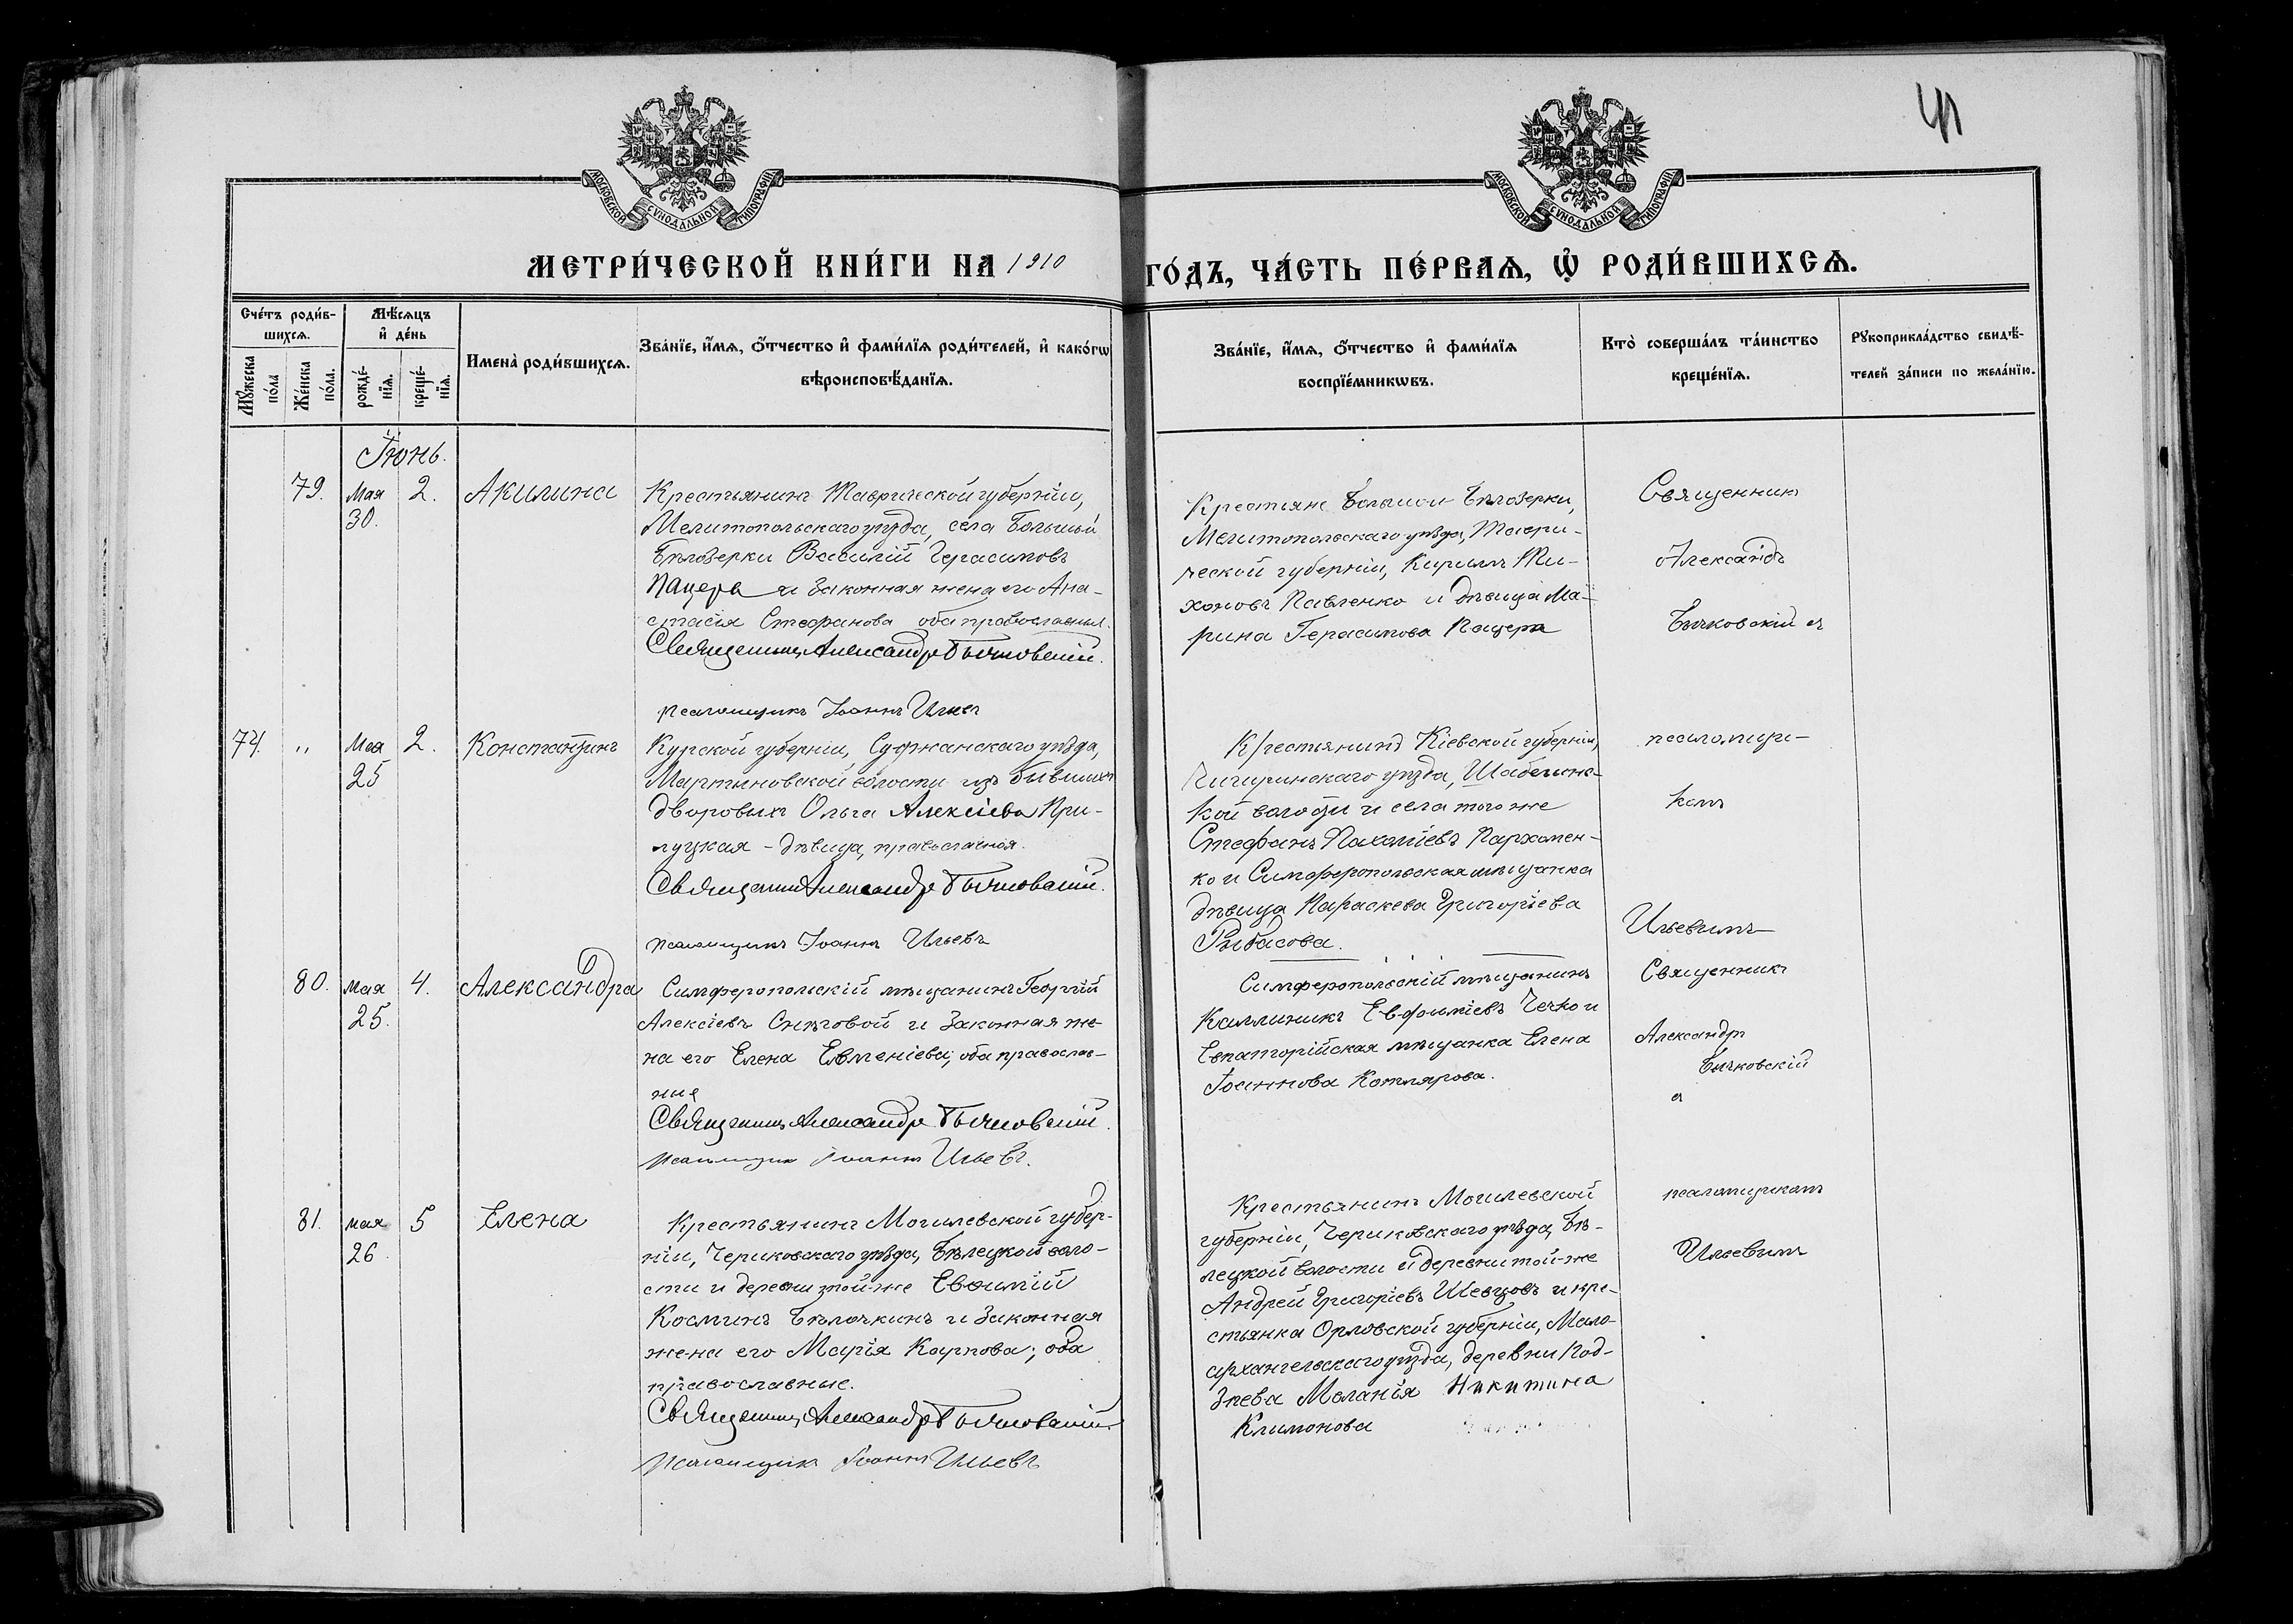 41
МОСКОВСКОЙ СУНОДАЛЬНОЙ ТИПОГРАФІИ
МОСКОВСКОЙ СУНОДАЛЬНОЙ ТИПОГРАФІИ
МЕТРИ́ЧЕСКОЙ КНИ́ГИ НА 1910 ГО́ДЪ, ЧА́СТЬ ПЕ́РВАѦ, Ѽ РОДИ́ВШИХСѦ.
Сче́тъ роди́в-
шихсѧ.
Мꙋ́жеска по́ла
Же́нска по́ла.
Мѣ́сѧцъ
и҆ де́нь
рожде́-
нїѧ.
креще́-
нїѧ.
Имена̀ роди́вшихсѧ.
Зва́нїе, и҆́мѧ, ѻ҆́тчество и҆ фами́лїѧ роди́телей, и҆ како́гѡ
вѣроисповѣ́данїѧ.
Зва́нїе, и҆́мѧ, ѻ҆́тчество и҆ фами́лїѧ
воспрїе́мникѡвъ.
Кто̀ соверша́лъ та́инство
креще́нїѧ.
Рꙋкоприкла́дство свидѣ́-
телей за́писи по жела́нїю.
Іюнь.
79. Мая 2. Акилина
30.
Крестьянинъ Таврической губерніи,
Мелитопольскаго уѣзда, села Большой
Бѣлозерки Василій Герасимовъ
Пацера и законная жена его Ана-
стасія Стефанова оба православныя.
Священникъ Александръ Бычковскій.
псаломщикъ Іоаннъ Ильев
Крестьяне Большой Бѣлозерки,
Мелитопольскаго уѣзда, Таври-
ческой губерніи, Кириллъ Ти-
хоновъ Павленко и дѣвица Ма-
рина Герасимова Пацера
Священник
Александъ
Бычковскій съ
74. " Мая 2. Константинъ
25
Курской губерніи, Суджанскаго уѣзда,
Мартыновской волости изъ бывшихъ
дворовыхъ Ольга Алексіева При-
луцкая - дѣвица, православная.
Священникъ Александръ Бычковскій.
псаломщикъ Іоаннъ Ильевъ
Крестьянинъ Кіевской губерніи,
Чигиринскаго уѣзда, Шабельни-
кой волости и села того же
Стефанъ Пахоміевъ Пархомен-
ко и Симферопольская мѣщанка
дѣвица Параскева Григоріева
Рыбасова.
псаломщи-
комъ
Ильевымъ
80. мая 4. Александра
25.
Симферопольскій мѣщанинъ Георгій
Алексіевъ Снѣговой и законная же-
на его Елена Евменіева; оба православ-
ныя
Священникъ Александръ Бычковскій.
псаломщик Іоаннъ Ильевъ.
Симферопольскій мѣщанинъ
Каллиникъ Евфиміевъ Чечко и
Евпаторійская мѣщанка Елена
Іоаннова Котлярова.
Священникъ
Александръ
Бычковскій
съ
81. мая 5 Елена
26
Крестьянинъ Могилевской губер-
ніи, Чериковскаго уѣзда, Бѣлецкой воло-
сти и деревни той-же Евѳимій
Косминъ Бѣлочкинъ и законная
жена его Марія Карпова; оба
православные.
Священникъ Александръ Бычковскій.
псаломщик Іоаннъ Ильевъ
Крестьянинъ Могилевской
губерніи, Чериковскаго уѣзда, Бѣ-
лецкой волости и деревни той-же
Андрей Григоріевъ Шевцовъ и кре-
стьянка Орловской губерніи, Мало-
архангельскаго уѣзда, деревни Под-
зѣева Меланія Никитина
Климонова
псаломщикомъ
Ильевымъ